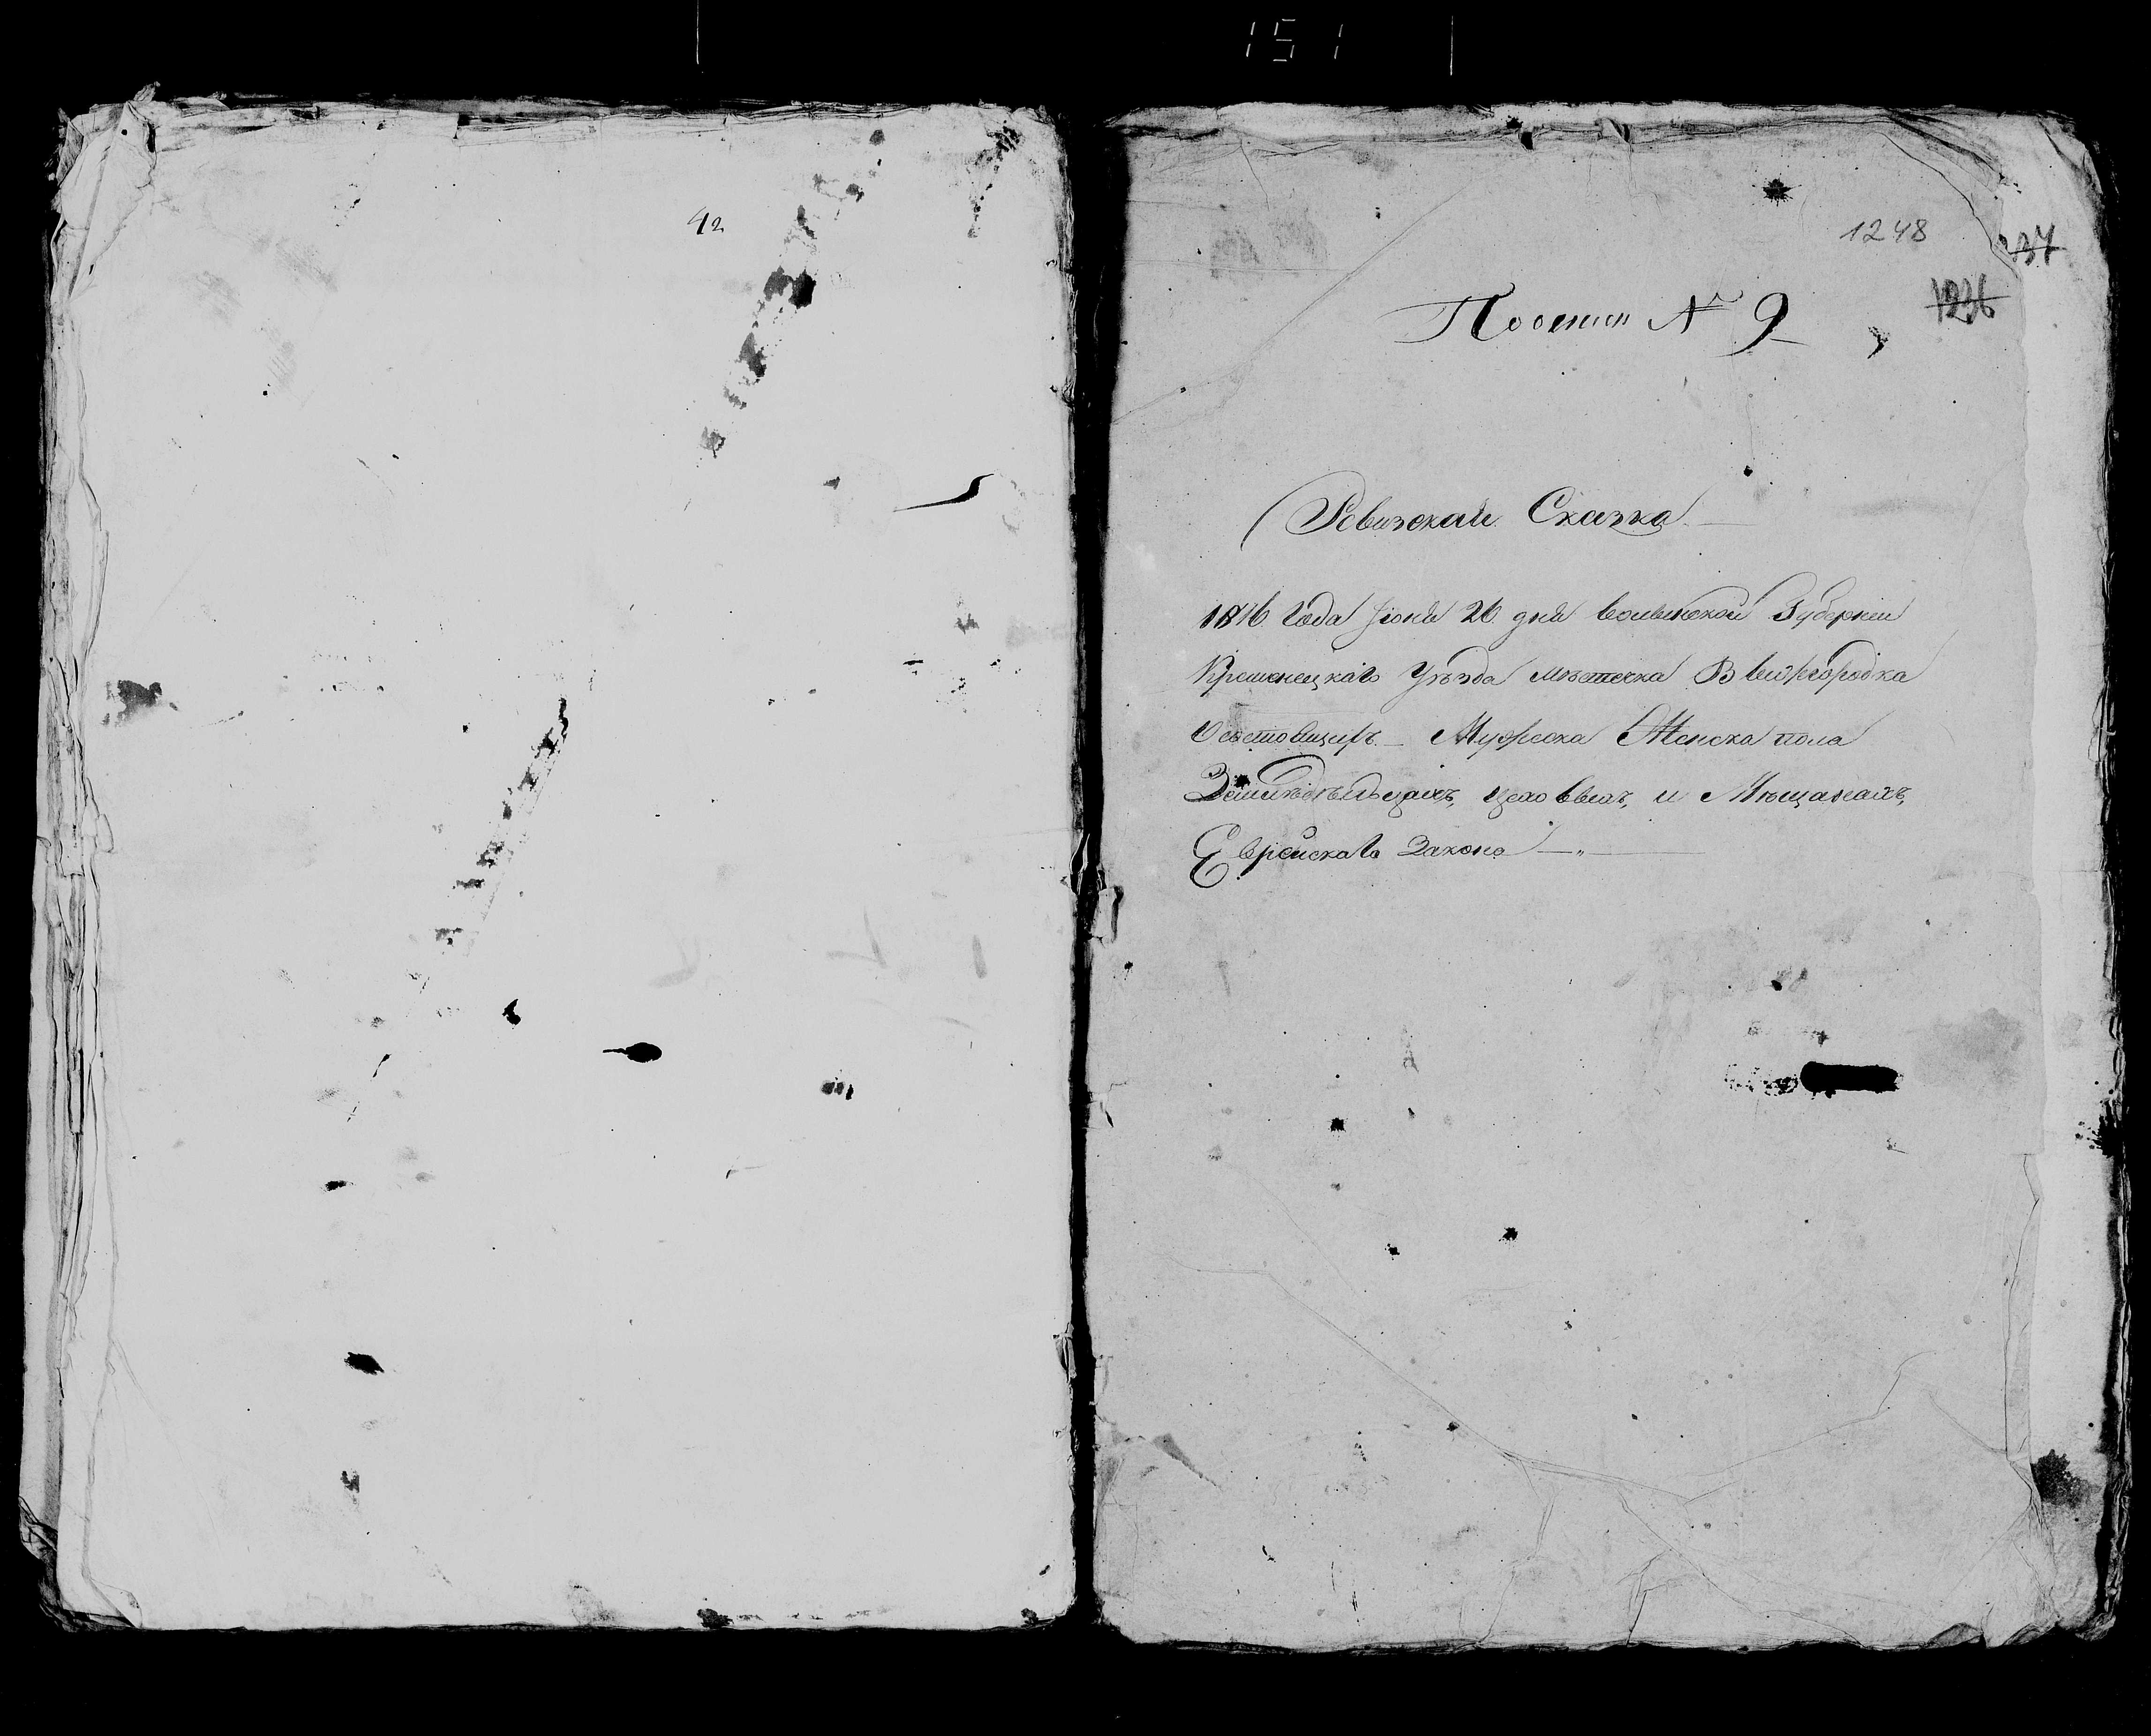 151
42
1248
137
1236
По описи № 9
Ревизская Сказка
1816 Года Июня 26 дня Волынской Губернии
Кременецкаго Уезда местечка Вышгородка
Мужеска Женска пола
Земледельцахъ, цеховвыхъ, и Мещанахъ,
Еврейскаго Закона